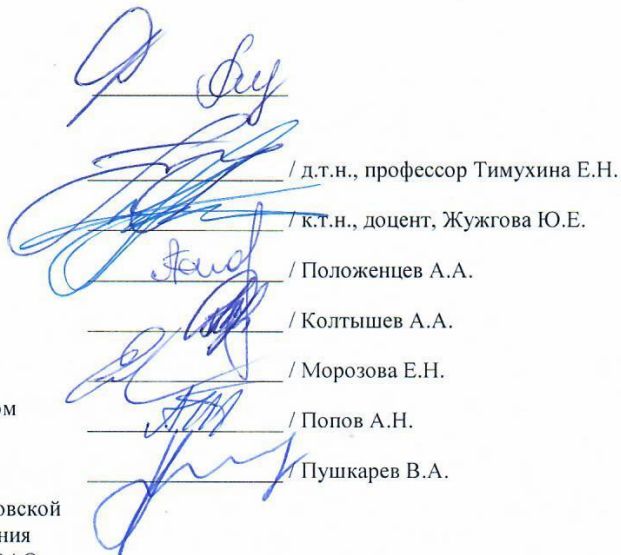 / д.т.н., профессор Тимухина Е.Н.
/ к.т.н., доцент, Жужгова Ю.Е.
/ Положенцев А.А.
/ Колтышев А.А.
/ Морозова Е.Н.
ом
/ Попов А.Н.
/ Пушкарев В.А.
овской
ния